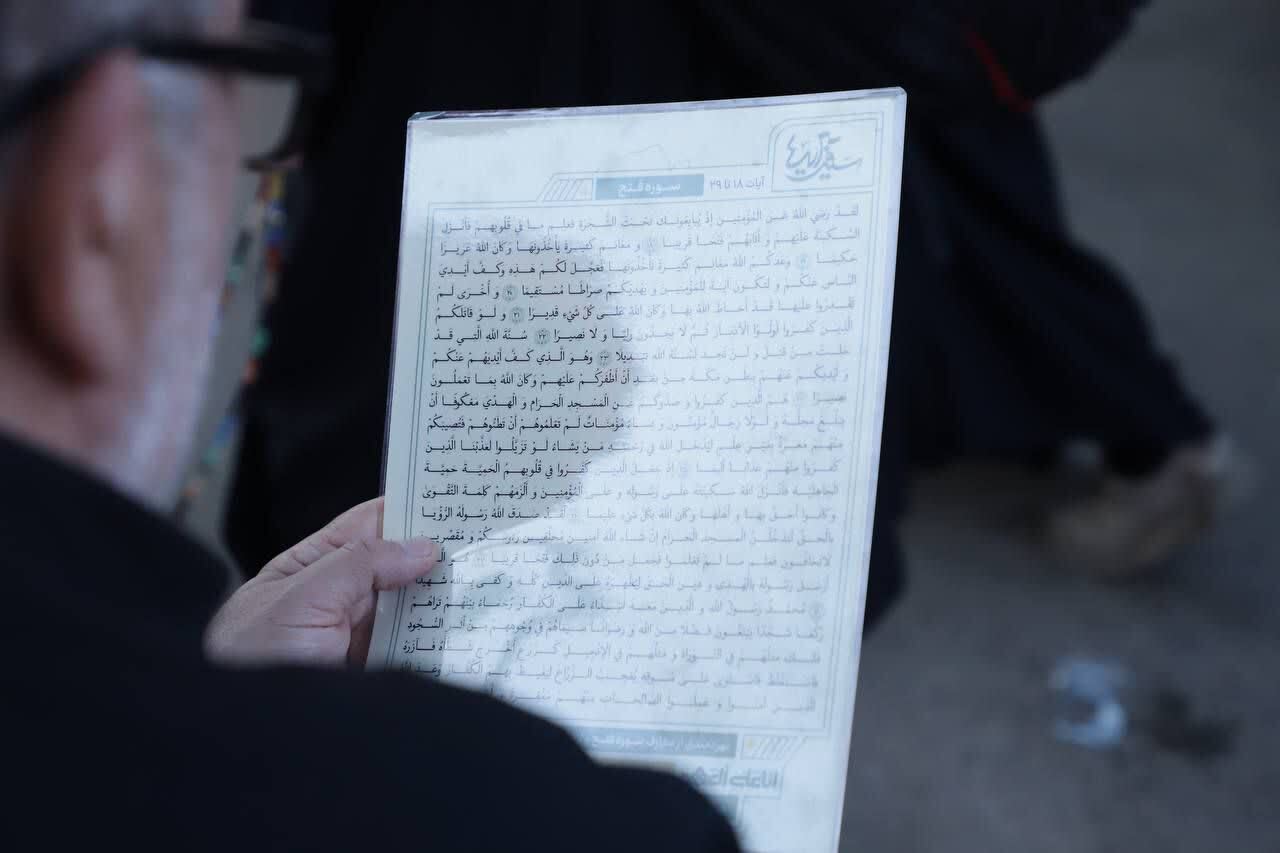 آیات ۱۸ تا ۲۹
سوره فتح
لَقَدْ رَضِيَ اللَّهُ عَنِ الْمُؤْمِنِينَ إِذْ يُبَايِعُونَكَ تَحْتَ الشَّجَرَةِ فَعَلِمَ مَا فِي قُلُوبِهِمْ فَأَنْزَلَ
السَّكِينَةَ عَلَيْهِمْ وَ أَثَابَهُمْ فَتْحًا قَرِيبًا ۱۸ وَ مَغَانِمَ كَثِيرَةً يَأْخُذُونَهَا وَكَانَ اللَّهُ عَزِيزًا
حَكِيمًا ۱۹ وَعَدَكُمُ اللَّهُ مَغَانِمَ كَثِيرَةً تَأْخُذُونَهَا فَعَجَّلَ لَكُمْ هَذِهِ وَكَفَّ أَيْدِيَ
النَّاسِ عَنْكُمْ وَ لِتَكُونَ آيَةً لِلْمُؤْمِنِينَ وَ يَهْدِيَكُمْ صِرَاطًا مُسْتَقِيمًا ۲۰ وَ أُخْرَى لَمْ
تَقْدِرُوا عَلَيْهَا قَدْ أَحَاطَ اللَّهُ بِهَا وَكَانَ اللَّهُ عَلَى كُلِّ شَيْءٍ قَدِيرًا ۲۱ وَ لَوْ قَاتَلَكُمُ
الَّذِينَ كَفَرُوا لَوَلَّوُا الْأَدْبَارَ ثُمَّ لَا يَجِدُونَ وَلِيًّا وَ لَا نَصِيرًا ۲۲ سُنَّةَ اللَّهِ الَّتِي قَدْ
خَلَتْ مِنْ قَبْلُ وَ لَنْ تَجِدَ لِسُنَّةِ اللَّهِ تَبْدِيلًا ۲۳ وَهُوَ الَّذِي كَفَّ أَيْدِيَهُمْ عَنْكُمْ
وَ أَيْدِيَكُمْ عَنْهُمْ بِبَطْنِ مَكَّةَ مِنْ بَعْدِ أَنْ أَظْفَرَكُمْ عَلَيْهِمْ وَكَانَ اللَّهُ بِمَا تَعْمَلُونَ
بَصِيرًا هُمُ الَّذِينَ كَفَرُوا وَ صَدُّوكُمْ عَنِ الْمَسْجِدِ الْحَرَامِ وَ الْهَدْيَ مَعْكُوفًا أَنْ
يَبْلُغَ مَحِلَّهُ وَ لَوْلَا رِجَالٌ مُؤْمِنُونَ وَ نِسَاءٌ مُؤْمِنَاتٌ لَمْ تَعْلَمُوهُمْ أَنْ تَطَئُوهُمْ فَتُصِيبَكُمْ
مِنْهُمْ مَعَرَّةٌ بِغَيْرِ عِلْمٍ لِيُدْخِلَ اللَّهُ فِي رَحْمَتِهِ مَنْ يَشَاءُ لَوْ تَزَيَّلُوا لَعَذَّبْنَا الَّذِينَ
كَفَرُوا مِنْهُمْ عَذَابًا أَلِيمًا إِذْ جَعَلَ الَّذِينَ كَفَرُوا فِي قُلُوبِهِمُ الْحَمِيَّةَ حَمِيَّةَ
الْجَاهِلِيَّةِ فَأَنْزَلَ اللَّهُ سَكِينَتَهُ عَلَى رَسُولِهِ وَ عَلَى الْمُؤْمِنِينَ وَ أَلْزَمَهُمْ كَلِمَةَ التَّقْوَى
وَكَانُوا أَحَقَّ بِهَا وَ أَهْلَهَا وَكَانَ اللَّهُ بِكُلِّ شَيْءٍ عَلِيمًا لَقَدْ صَدَقَ اللَّهُ رَسُولَهُ الرُّؤْيَا
بِالْحَقِّ لَتَدْخُلُنَّ الْمَسْجِدَ الْحَرَامَ إِنْ شَاءَ اللَّهُ آمِنِينَ مُحَلِّقِينَ رُءُوسَكُمْ وَ مُقَصِّرِينَ
لَا تَخَافُونَ فَعَلِمَ مَا لَمْ تَعْلَمُوا فَجَعَلَ مِنْ دُونِ ذَلِكَ فَتْحًا قَرِيبًا
أَرْسَلَ رَسُولَهُ بِالْهُدَى وَ دِينِ الْحَقِّ لِيُظْهِرَهُ عَلَى الدِّينِ كُلِّهِ وَ كَفَى بِاللَّهِ شَهِيدًا
مُحَمَّدٌ رَسُولُ اللَّهِ وَ الَّذِينَ مَعَهُ أَشِدَّاءُ عَلَى الْكُفَّارِ رُحَمَاءُ بَيْنَهُمْ تَرَاهُمْ
رُكَّعًا سُجَّدًا يَبْتَغُونَ فَضْلًا مِنَ اللَّهِ وَ رِضْوَانًا سِيمَاهُمْ فِي وُجُوهِهِمْ مِنْ أَثَرِ السُّجُودِ
ذَلِكَ مَثَلُهُمْ فِي التَّوْرَاةِ وَ مَثَلُهُمْ فِي الْإِنْجِيلِ كَزَرْعٍ أَخْرَجَ شَطْأَهُ فَآزَرَهُ
فَاسْتَغْلَظَ فَاسْتَوَى عَلَى سُوقِهِ يُعْجِبُ الزُّرَّاعَ لِيَغِيظَ بِهِمُ الْكُفَّارَ وَعَدَ اللَّهُ
الَّذِينَ آمَنُوا وَ عَمِلُوا الصَّالِحَاتِ مِنْهُمْ مَغْفِرَةً
سوره فتح